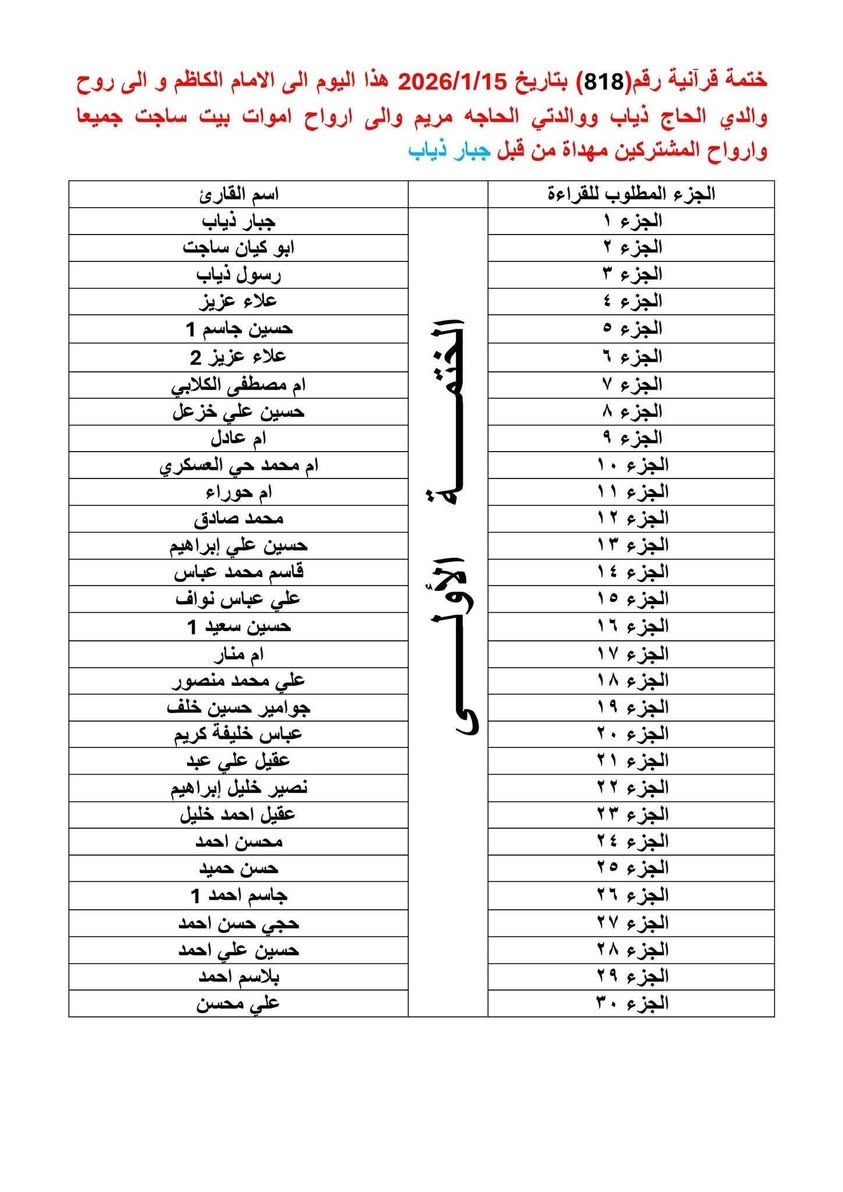 ختمة قرآنية رقم(818) بتاريخ 2026/1/15 هذا اليوم الى الامام الكاظم و الى روح
والدي الحاج ذياب ووالدتي الحاجه مريم والى ارواح اموات بيت ساجت جميعا
وارواح المشتركين مهداة من قبل جبار ذياب
الجزء المطلوب للقراءة اسم القارئ
الجزء ١ جبار ذياب
الجزء ٢ ابو كيان ساجت
الجزء ٣ رسول ذياب
الجزء ٤ علاء عزيز
الجزء ٥ حسين جاسم 1
الجزء ٦ علاء عزيز 2
الجزء ٧ ام مصطفى الكلابي
الجزء ٨ حسين علي خزعل
الجزء ٩ ام عادل
الجزء ١٠ ام محمد حي العسكري
الجزء ١١ ام حوراء
الجزء ١٢ محمد صادق
الجزء ١٣ حسين علي إبراهيم
الجزء ١٤ قاسم محمد عباس
الجزء ١٥ علي عباس نواف
الجزء ١٦ حسين سعيد 1
الجزء ١٧ ام منار
الجزء ١٨ علي محمد منصور
الجزء ١٩ جوامير حسين خلف
الجزء ٢٠ عباس خليفة كريم
الجزء ٢١ عقيل علي عبد
الجزء ٢٢ نصير خليل إبراهيم
الجزء ٢٣ عقيل احمد خليل
الجزء ٢٤ محسن احمد
الجزء ٢٥ حسن حميد
الجزء ٢٦ جاسم احمد 1
الجزء ٢٧ حجي حسن احمد
الجزء ٢٨ حسين علي احمد
الجزء ٢٩ بلاسم احمد
الجزء ٣٠ علي محسن
الختمـــــــة الأولـــــى